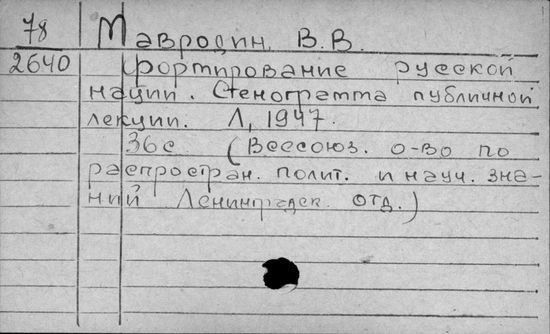 78 Мавродин В.В.
2640 Формирование русской
нации. Стенограмма публичной
лекции. Л, 1947.
36с (Всесоюз. о-во по
распростран. полит. и науч. зна-
ний Ленинградск. отд.)